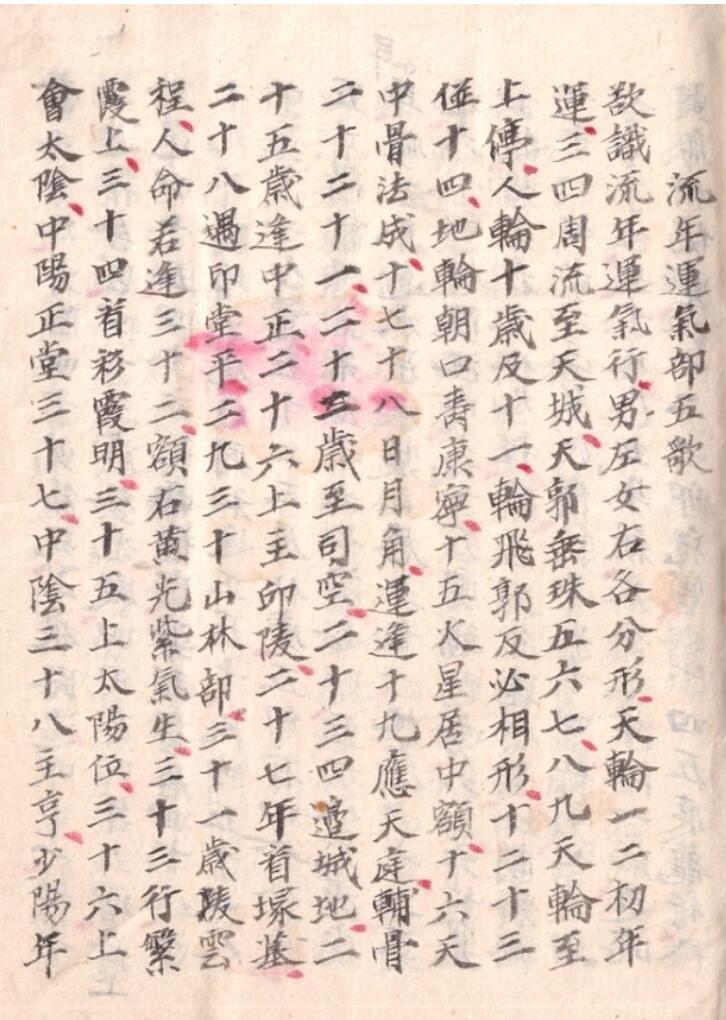 流年運氣部五歌
欲識流年運氣行男左女右各分形天輪一二初年
運三四周流至天城天郭垂珠五六七八九天輪至
上停人輪十歲及十一輪飛郭反必相形十二十三
並十四地輪朝口壽康寧十五火星居中額十六天
中骨法成十七十八日月角運逢十九應天庭輔骨
二十二十一二十二歲至司空二十三四邊城地二
十五歲逢中正二十六上主印陵二十七年首塚墓
二十八遇印堂平二九三十山林部三十一歲淩雲
程人命若逢三十二額右黃光紫氣生三十三行繁
霞上三十四首彩霞明三十五上太陽位三十六上
會太陰中陽正堂三十七中陰三十八主亨少陽年